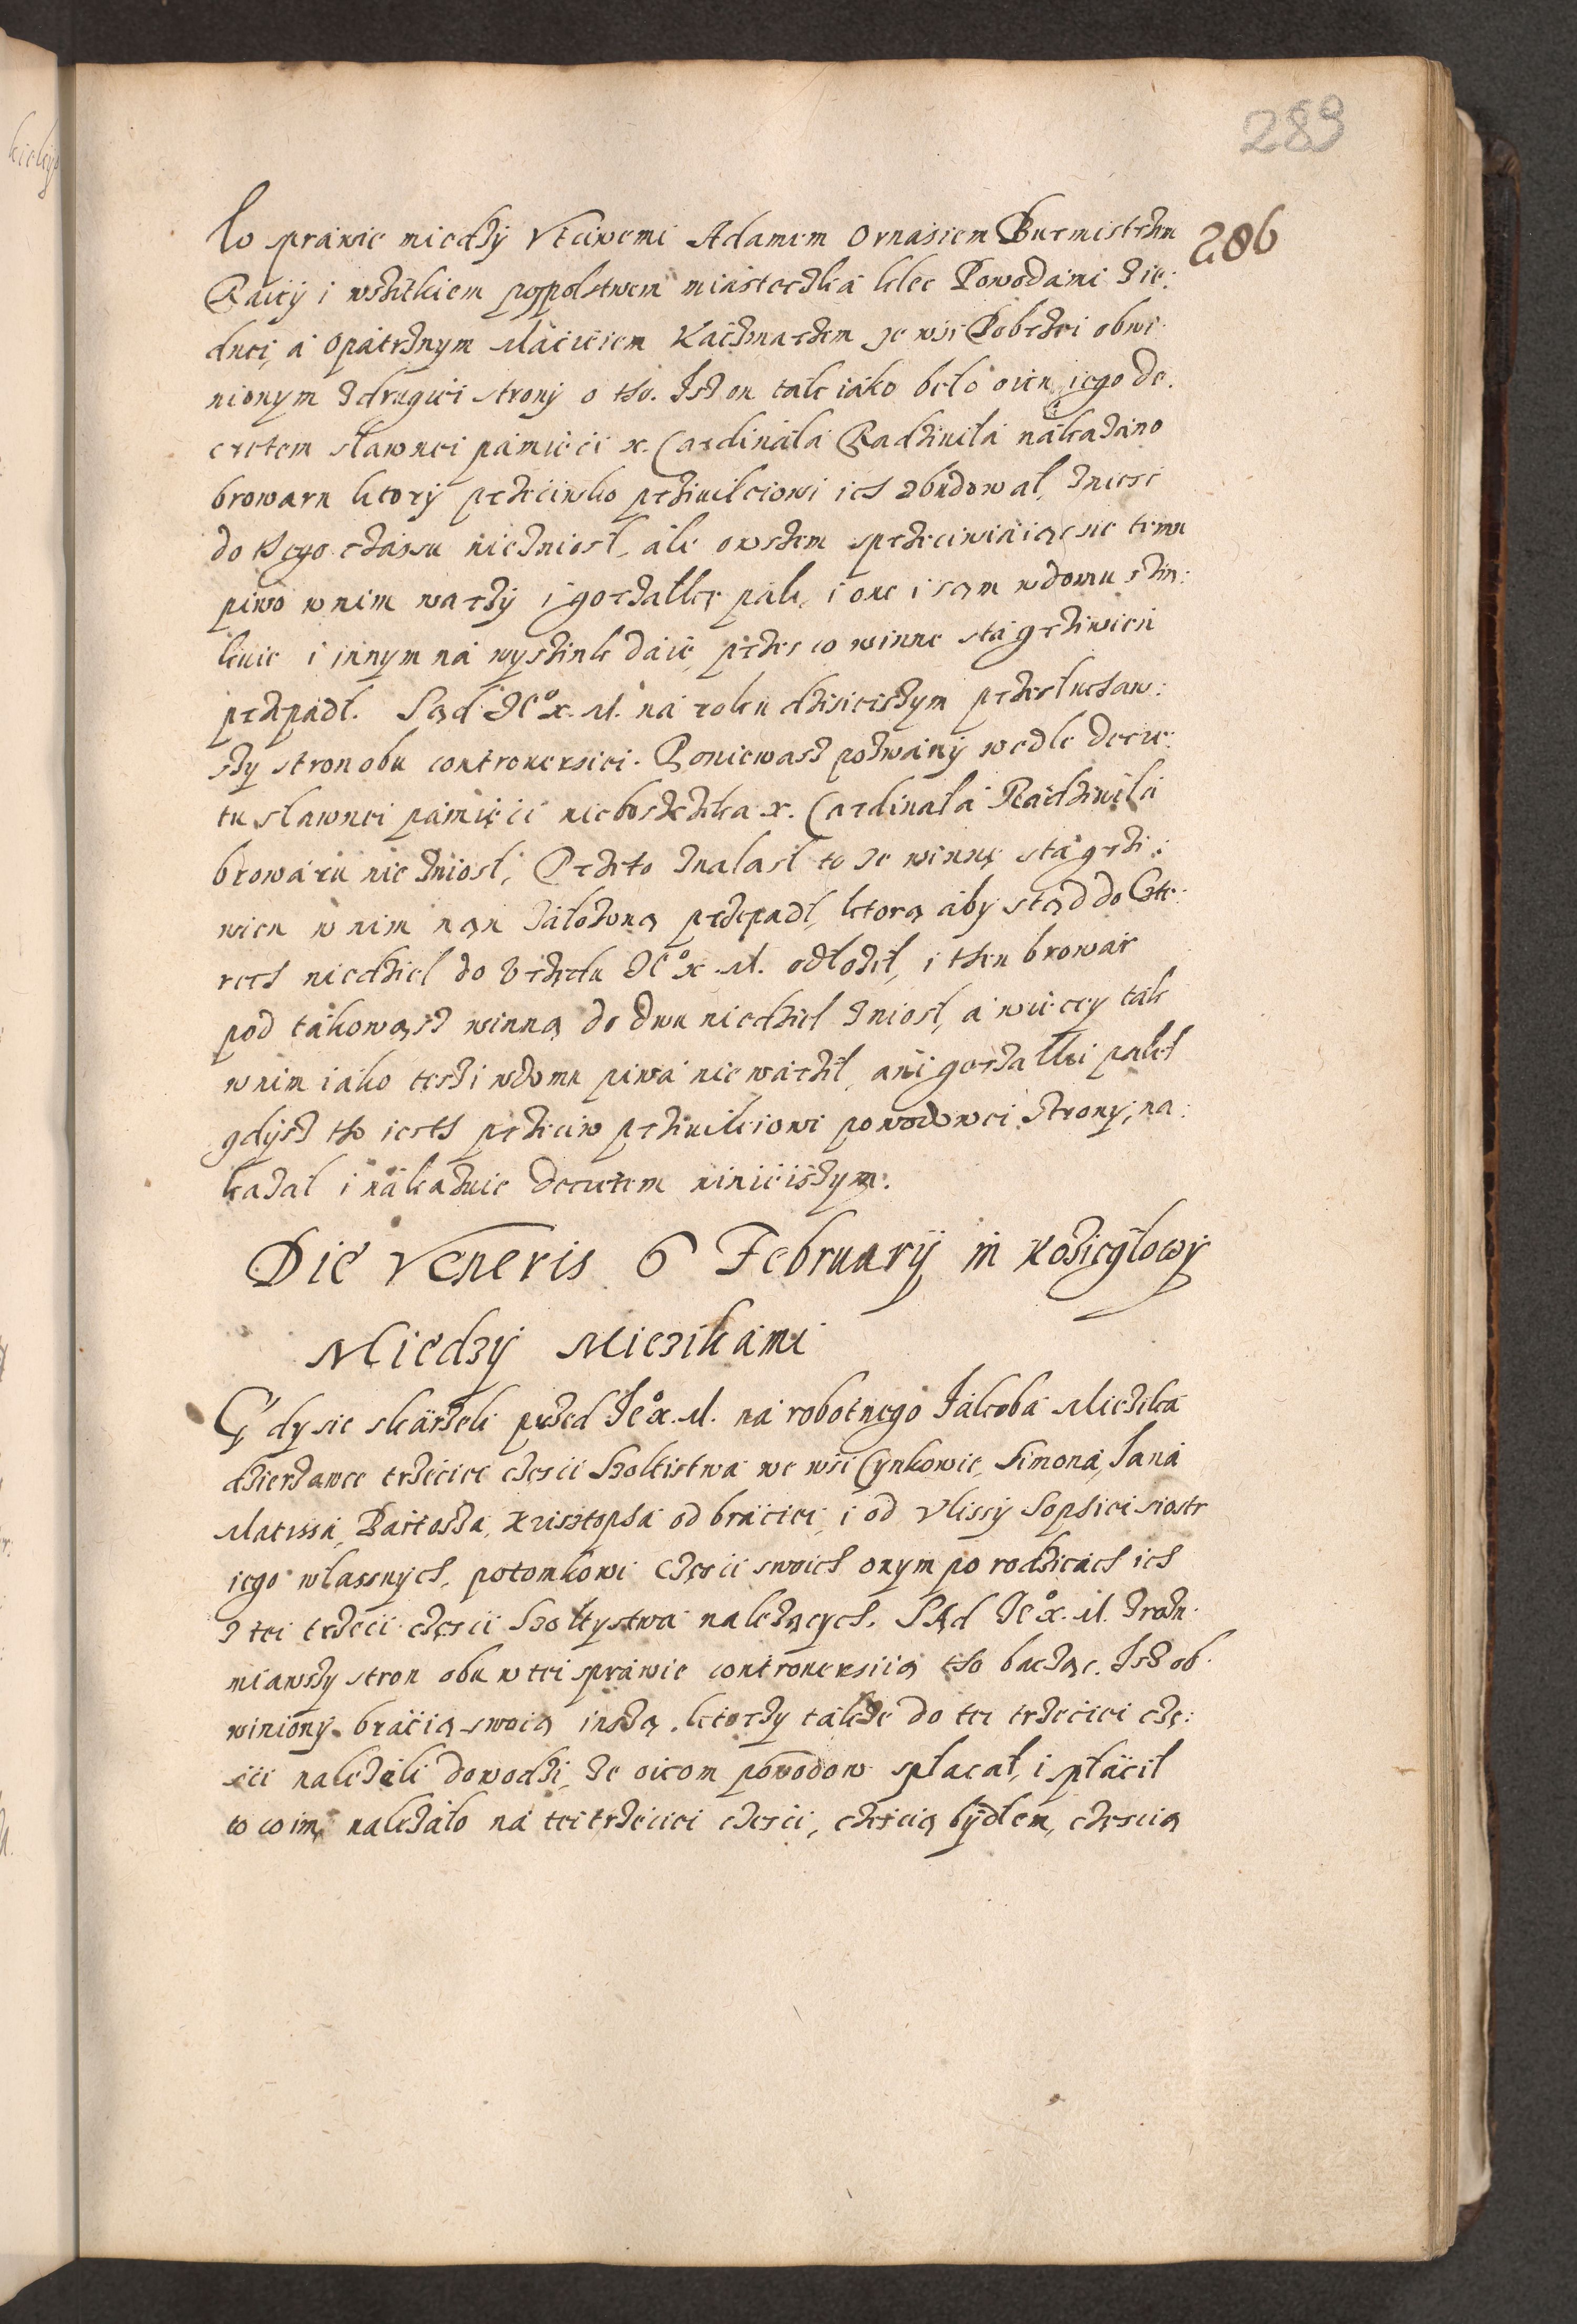 289
286
W spráwie miedzÿ Vtciwemi Adamem Ornasiem Burmistrzem
Raicÿ i wszitkiem pospolstwem miásteczká Lelec Powodámi zie:
dnei, á Opátrznym Máciciem Káczmarzem ze wsi Bobrzei obwi-
nionym z drugiei stronÿ o tho. Jsz on tak iáko beło oicu iego De.
cretem sławnei pámieci x. Cardinálá Radziwiłá nákazáno
browaru ktorÿ przeciwko przÿwileiowi ich zbudował, zniesc
do thego czássu nie zniosł, ále owszem sprzeciwiáiąc sie temu
piwo w nim warzÿ i gorzałkę pali, i one i sąm w domu szin:
kuie i innym ná wyszink dáie, przes co winne stá grziwien
przepádł. Sąd Je° x. M. ná roku dzisieiszym przesłuchaw:
szy stron obu controuersiei. Poniewasz pozwánÿ wedle decre:
tu sławnei pámięci nieboszczika x. Cardinałá Rádziwiłá
browáru nie zniosł, Przeto znalasł to ze winnę stá grzi:
wien w nim nąn záłożoną przepadł, ktorą áby stąd do Czte:
rech niedziel do Vrzędu Je° x. M. odłożeł, i then browár
pod tákowąsz winną do dwu niedziel zniosł, á więcy tak
w nim iáko tesz i w domu piwá nie wárził, áni gorzałki palił
gdÿsz tho iesth przeciw przÿwileiowi powodowei Stronÿ, na:
kazał i nákazuie decretem ninieiszym.
Die Veneris 6 Februarÿ in Koziegłowÿ
Miedzÿ Miezikámi
Gdy sie skárzeli przed Je° x. M. ná robotnego Jákobá Miezika
dzierżawce trzeciei czesci Szołtistwá we wsi Cynkowie, Simoná, Janá
Matissá, Bártoszá, Krisztophá od bráciei, i od Vlissÿ Sophiei siostr
iego własnÿch, potomkowi czesci swoich onym po rodzicách ich
z tei trzeci częsci Szołtystwá należącÿch. Sąd Je° x. M. zrozu-
miawszy stron obu w tei spráwie controuersiią tho bacząc. Jsz ob-
winionÿ bráciią swoią inszą, ktorzy tákże do tei trzeciei czę:
sci należeli dowodzi, że oicom powodow spłacał, i spłácił
to co im należáło ná tei trzeciei czesci, częscią bÿdłem, częscią